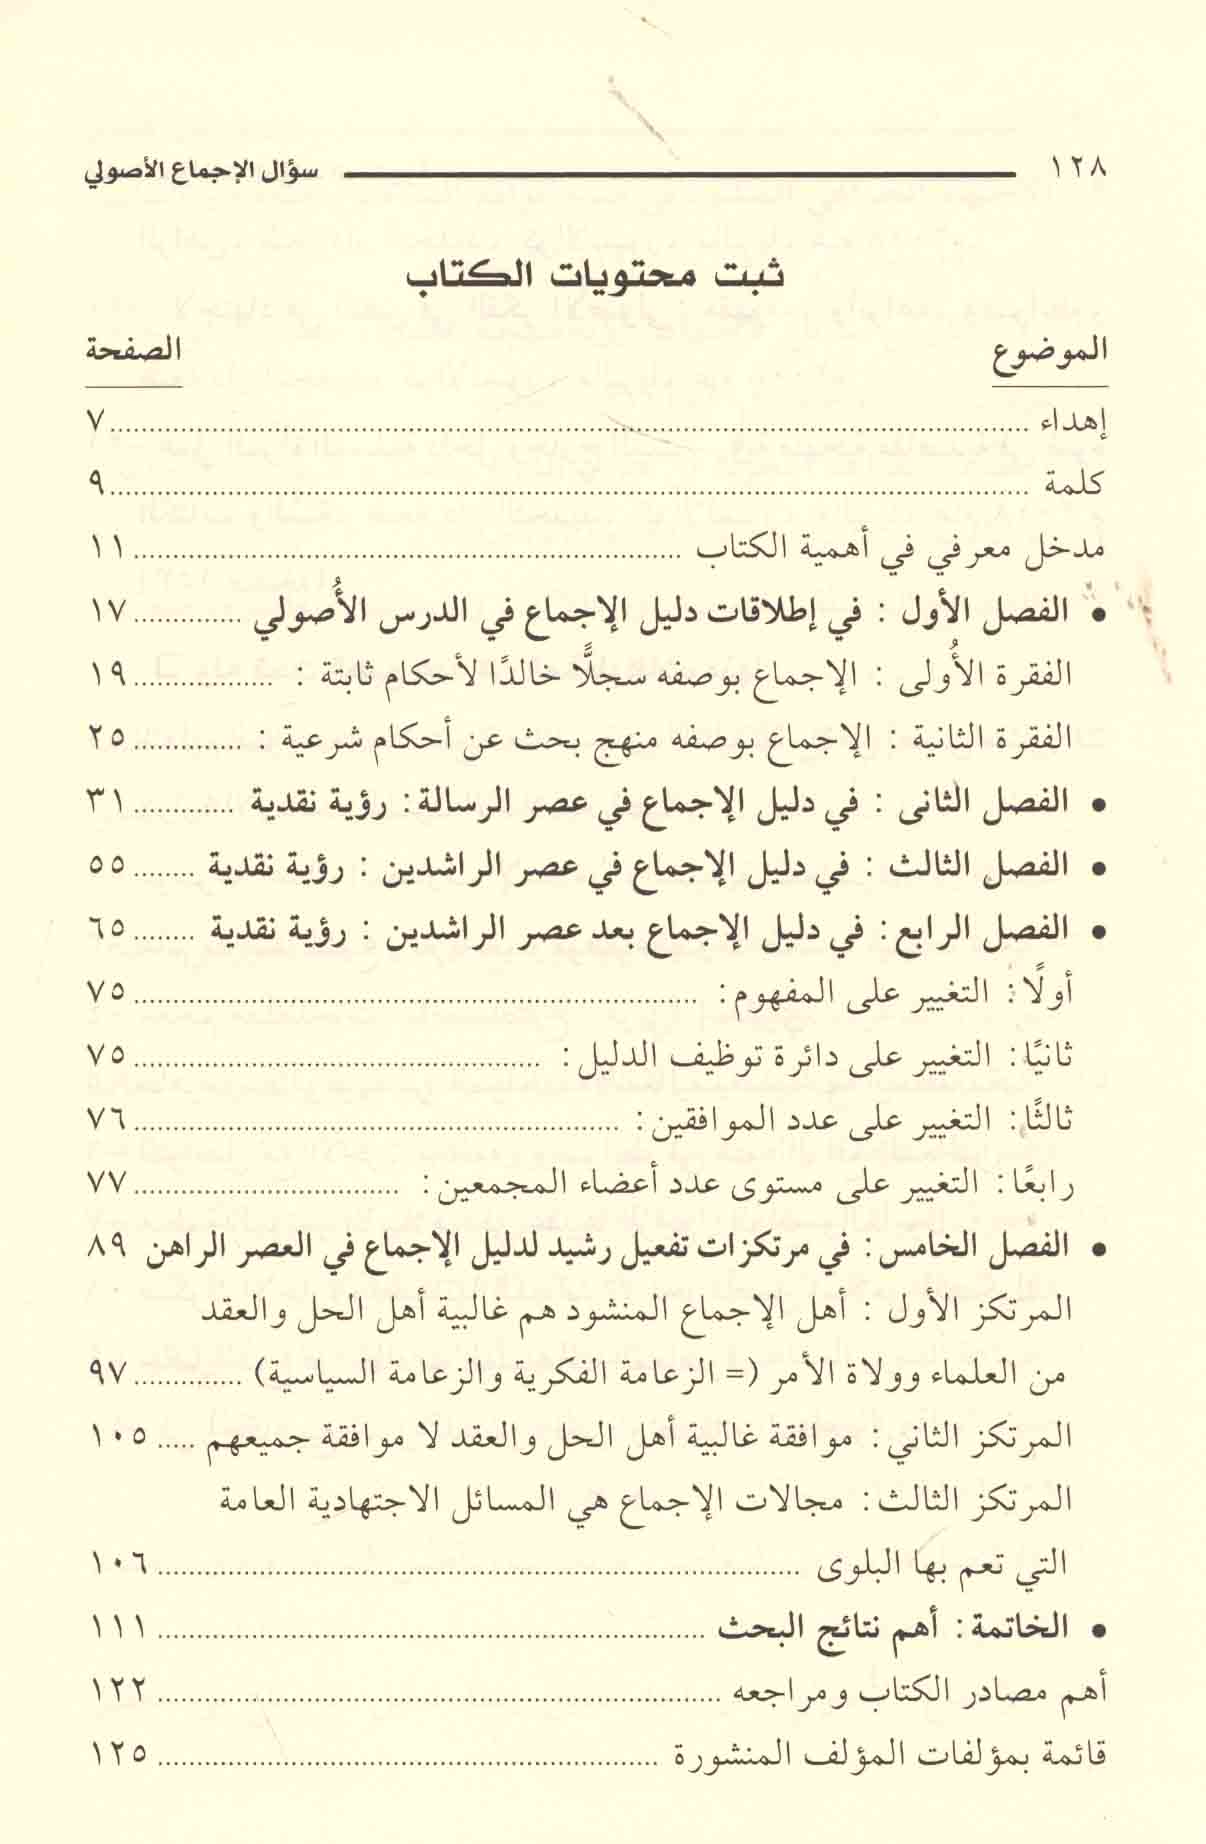 ١٢٨ سؤال الإجماع الأصولي
ثبت محتويات الكتاب
الموضوع الصفحة
إهداء ٧
كلمة ٩
مدخل معرفي في أهمية الكتاب ١١
• الفصل الأول : في إطلاقات دليل الإجماع في الدرس الأُصولي ١٧
الفقرة الأُولى : الإجماع بوصفه سجلًّا خالدًا لأحكام ثابتة : ١٩
الفقرة الثانية : الإجماع بوصفه منهج بحث عن أحكام شرعية : ٢٥
• الفصل الثانى : في دليل الإجماع في عصر الرسالة: رؤية نقدية ٣١
• الفصل الثالث : في دليل الإجماع في عصر الراشدين : رؤية نقدية ٥٥
• الفصل الرابع: في دليل الإجماع بعد عصر الراشدين : رؤية نقدية ٦٥
أولًا: التغيير على المفهوم: ٧٥
ثانيًا: التغيير على دائرة توظيف الدليل: ٧٥
ثالثًا: التغيير على عدد الموافقين: ٧٦
رابعًا: التغيير على مستوى عدد أعضاء المجمعين: ٧٧
• الفصل الخامس: في مرتكزات تفعيل رشيد لدليل الإجماع في العصر الراهن ٨٩
المرتكز الأول : أهل الإجماع المنشود هم غالبية أهل الحل والعقد
من العلماء وولاة الأمر (= الزعامة الفكرية والزعامة السياسية) ٩٧
المرتكز الثاني: موافقة غالبية أهل الحل والعقد لا موافقة جميعهم ١٠٥
المرتكز الثالث: مجالات الإجماع هي المسائل الاجتهادية العامة
التي تعم بها البلوى ١٠٦
• الخاتمة: أهم نتائج البحث ١١١
أهم مصادر الكتاب ومراجعه ١٢٢
قائمة بمؤلفات المؤلف المنشورة ١٢٥